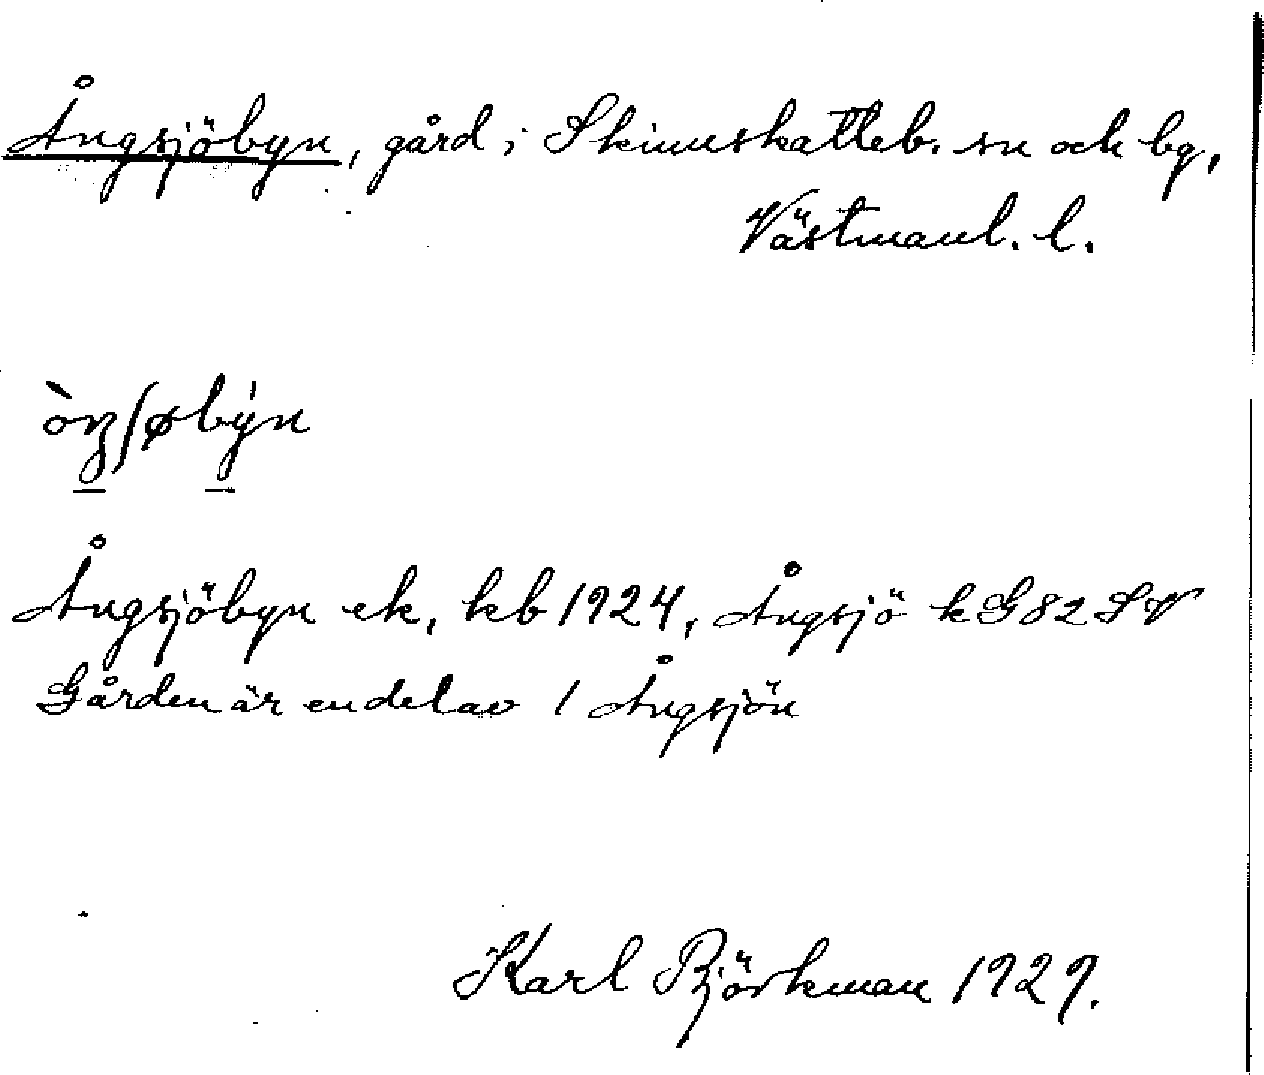 Ångsjöbyn, gård i Skinnskatteb. sn och bg,
Västmanl. l.
Ångsjöbyn ek, kb 1924, Ångsjö k G 82 SV
Gården är en del av 1 Ångsjön
Karl Björkman 1929.